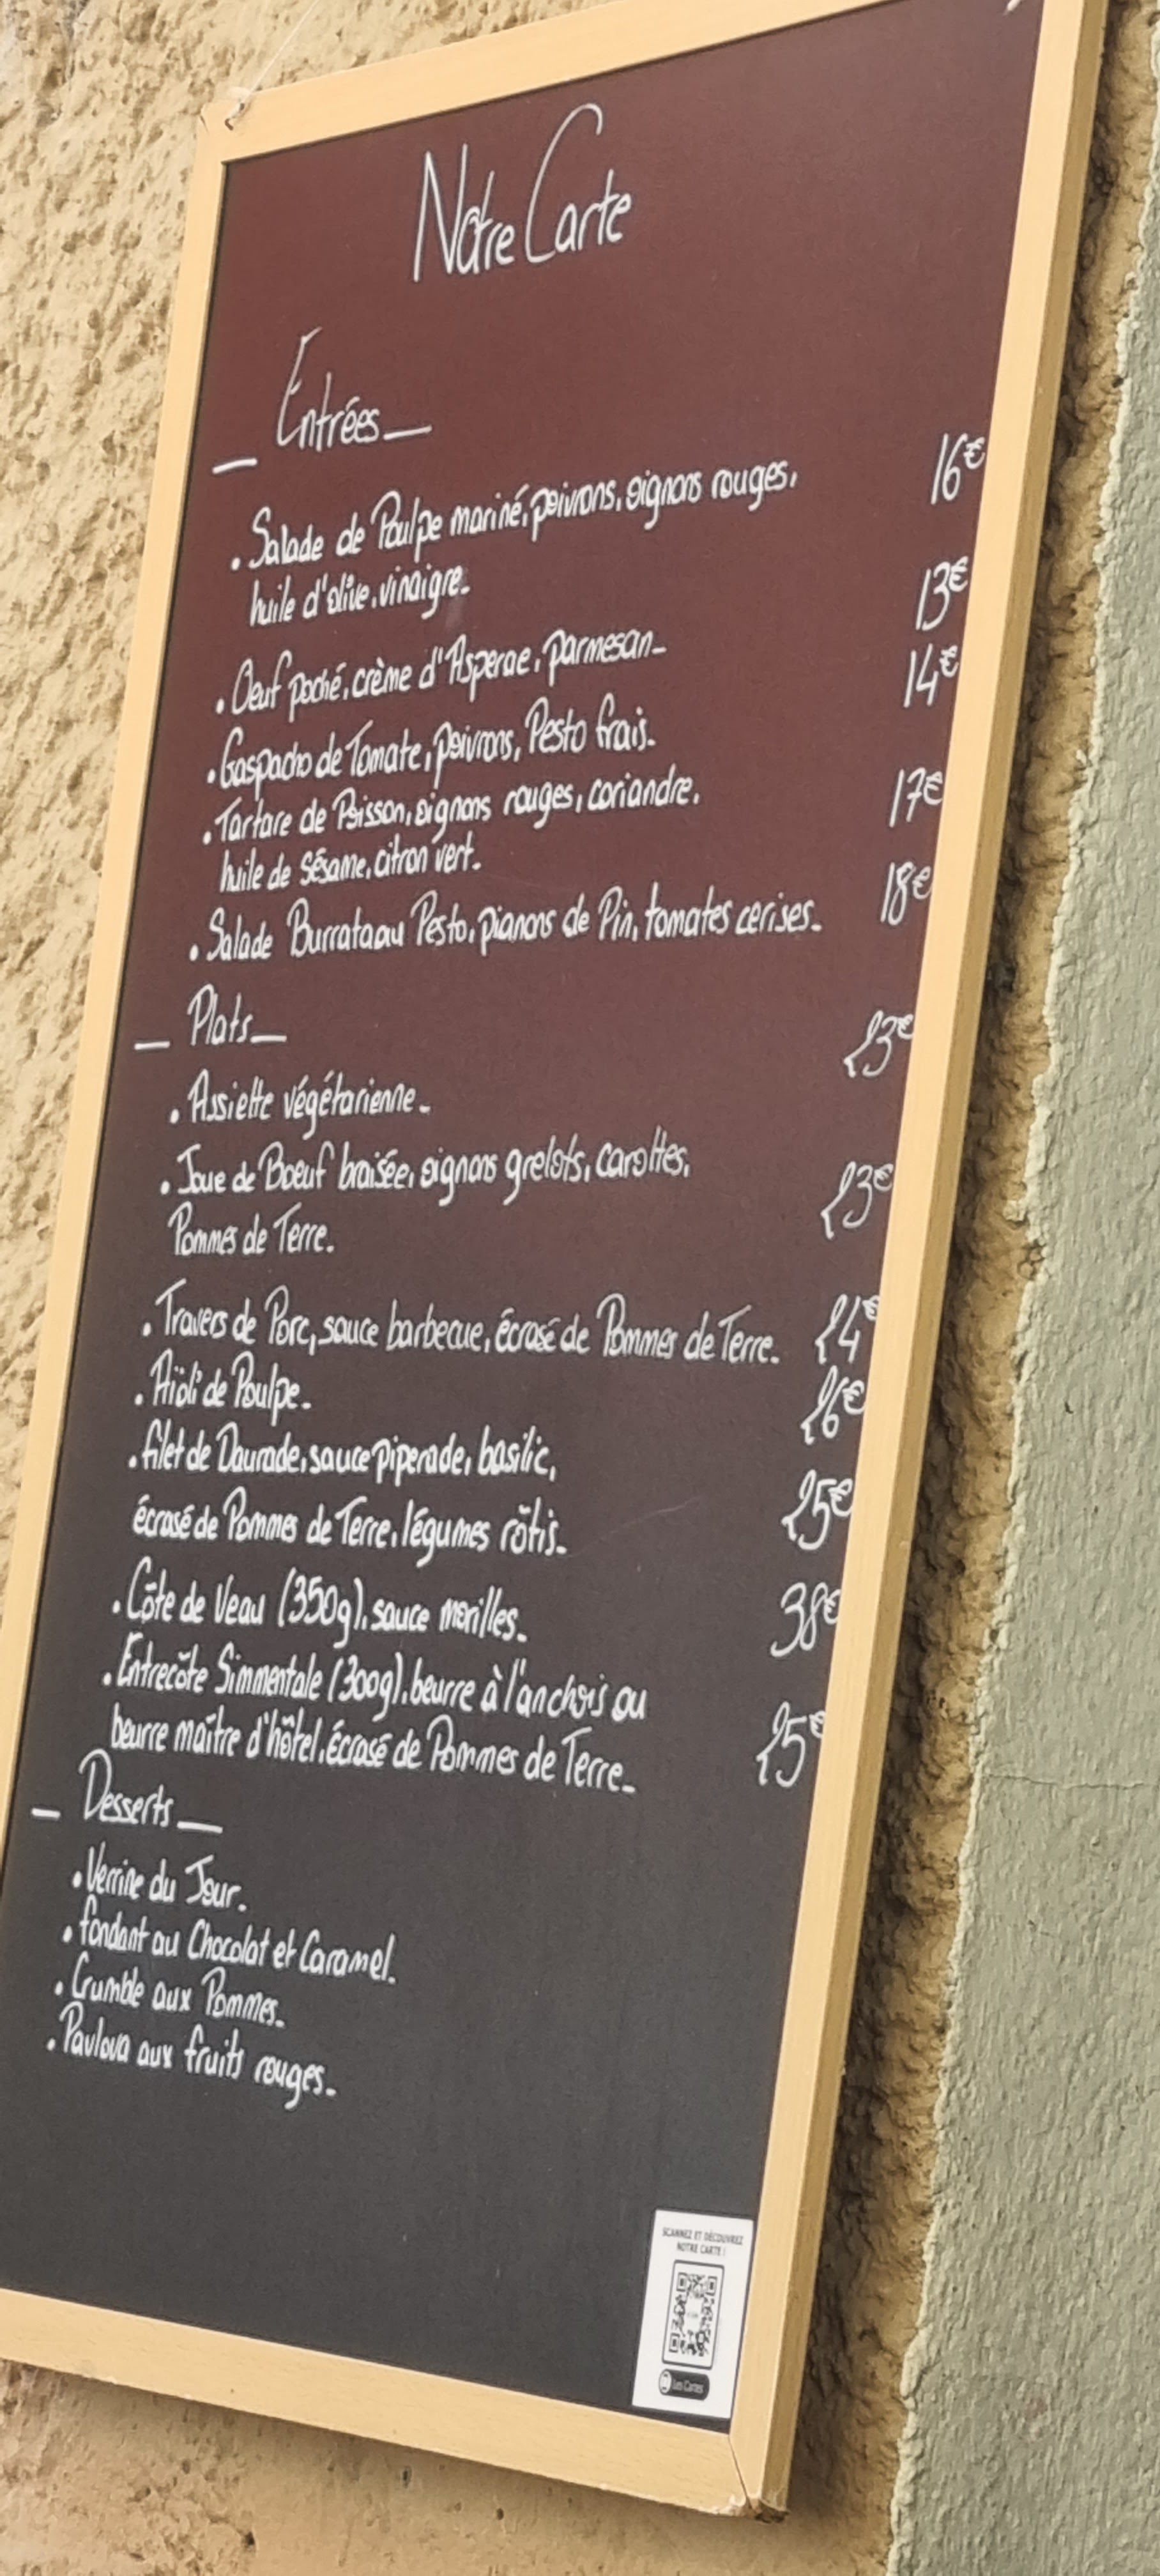 Notre Carte
_ Entrées _
• Salade de Poulpe mariné, poivrons, oignons rouges, 16€
huile d'olive, vinaigre_
• Oeuf poché, crème d'Asperae, parmesan_ 13€
• Gaspacho de Tomate, poivrons, Pesto frais. 14€
• Tartare de Poisson, oignons rouges, coriandre, 17€
huile de sésame, citron vert.
• Salade Burrata au Pesto, pignons de Pin, tomates cerises_ 18€
_ Plats _
• Assiette végétarienne_ 23€
• Joue de Boeuf braisée, oignons grelots, carottes, 23€
Pommes de Terre.
• Travers de Porc, sauce barbecue, écrasé de Pommes de Terre. 24€
• Aïoli de Poulpe_ 26€
• filet de Daurade, sauce piperade, basilic, 25€
écrasé de Pommes de Terre, légumes rôtis_
• Côte de Veau (350g), sauce morilles_ 38€
• Entrecôte Simmentale (300g), beurre à l'anchois ou 25€
beurre maître d'hôtel, écrasé de Pommes de Terre_
_ Desserts _
• Verrine du Jour.
• fondant au Chocolat et Caramel.
• Crumble aux Pommes_
• Pavlova aux fruits rouges_
SCANNEZ ET DÉCOUVREZ
NOTRE CARTE !